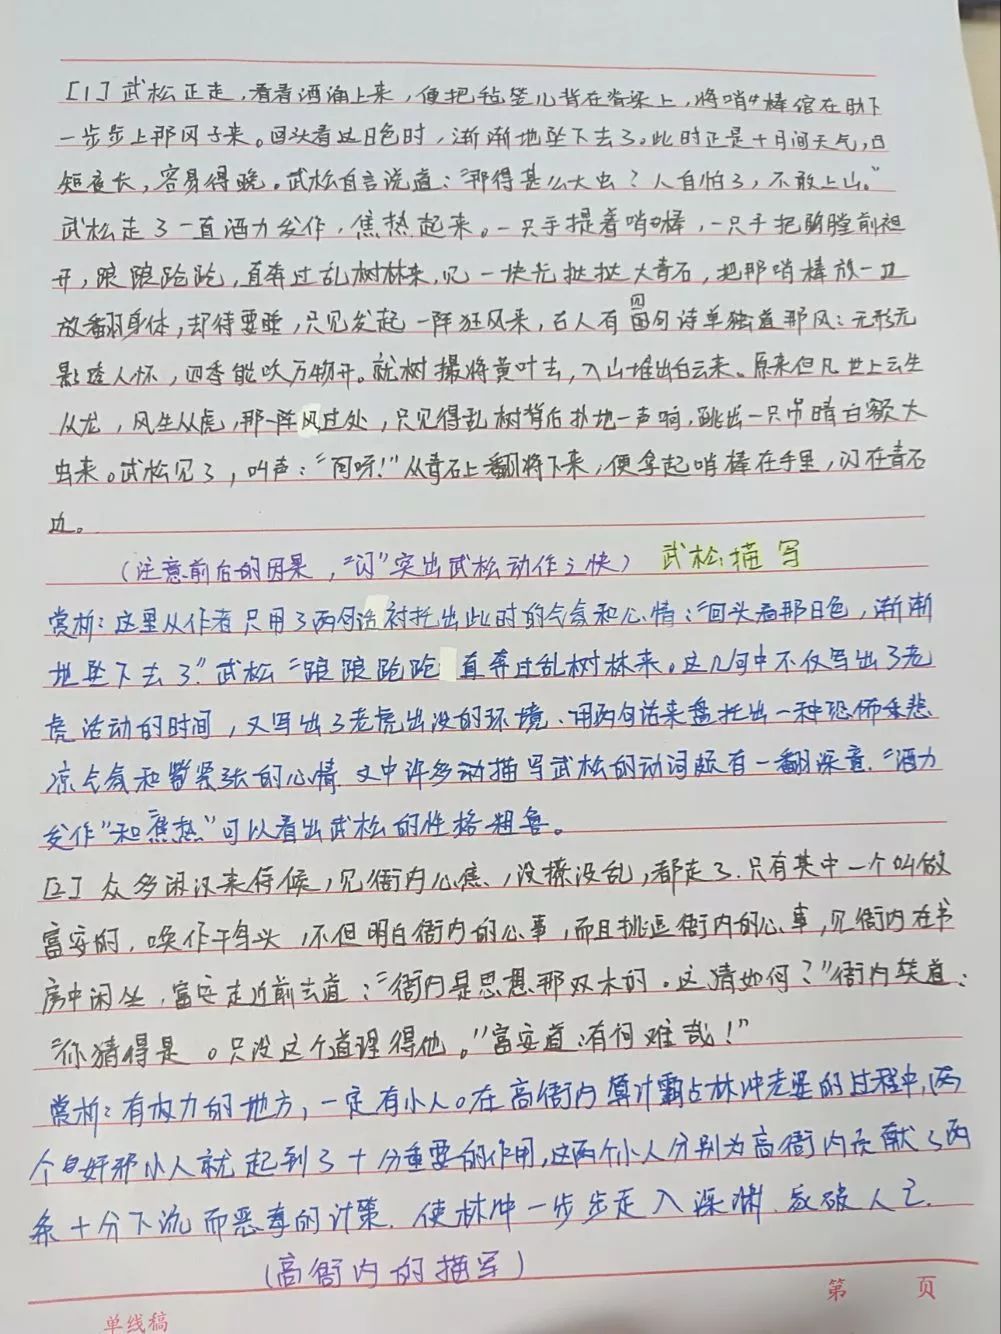 [1]武松正走,看看酒涌上来,便把毡笠儿背在脊梁上,将哨棒绾在肋下
一步步上那冈子来。回头看这日色时,渐渐地坠下去了。此时正是十月间天气,日
短夜长,容易得晚。武松自言说道:“那得甚么大虫?人自怕了,不敢上山。”
武松走了一直酒力发作,焦热起来。一只手提着哨棒,一只手把胸膛前袒
开,踉踉跄跄,直奔过乱树林来,见一块光挞挞大青石,把那哨棒放一边
放翻身体,却待要睡,只见发起一阵狂风来,古人有四句诗单独道那风:无形无
影透人怀,四季能吹万物开。就树撮将黄叶去,入山堆出白云来。原来但凡世上云生
从龙,风生从虎,那一阵风过处,只见得乱树背后扑地一声响,跳出一只吊睛白额大
虫来。武松见了,叫声:“阿呀!”从青石上翻将下来,便拿起哨棒在手里,闪在青石
边。
(注意前后的因果,“闪”突出武松动作之快) 武松描写
赏析:这里从作者只用了两句话衬托出此时的气氛和心情:“回头看那日色,渐渐
地坠下去了”武松“踉踉跄跄 直奔过乱树林来。这几句中不仅写出了老
虎活动的时间,又写出了老虎出没的环境、用两句话来盘托出一种恐怖和悲
凉气氛和紧张的心情.文中许多动描写武松的动词颇有一翻深意.“酒力
发作”和焦热”可以看出武松的性格粗鲁。
[2]众多闲汉来伺候,见衙内心焦,没撩没乱,都走了.只有其中一个叫做
富安的,唤作干鸟头,不但明白衙内的心事,而且挑逗衙内的心事,见衙内在书
房中闲坐,富安走近前去道:“衙内是思想那双木的。这猜如何?”衙内笑道:
“你猜得是。只没这个道理得他。”富安道:有何难哉!”
赏析:有权力的地方,一定有小人。在高衙内算计霸占林冲老婆的过程中,两
个奸邪小人就起到了十分重要的作用,这两个小人分别为高衙内贡献了两
条十分下流而恶毒的计策.使林冲一步步走入深渊.家破人亡.
(高衙内的描写)
第 页
单线稿